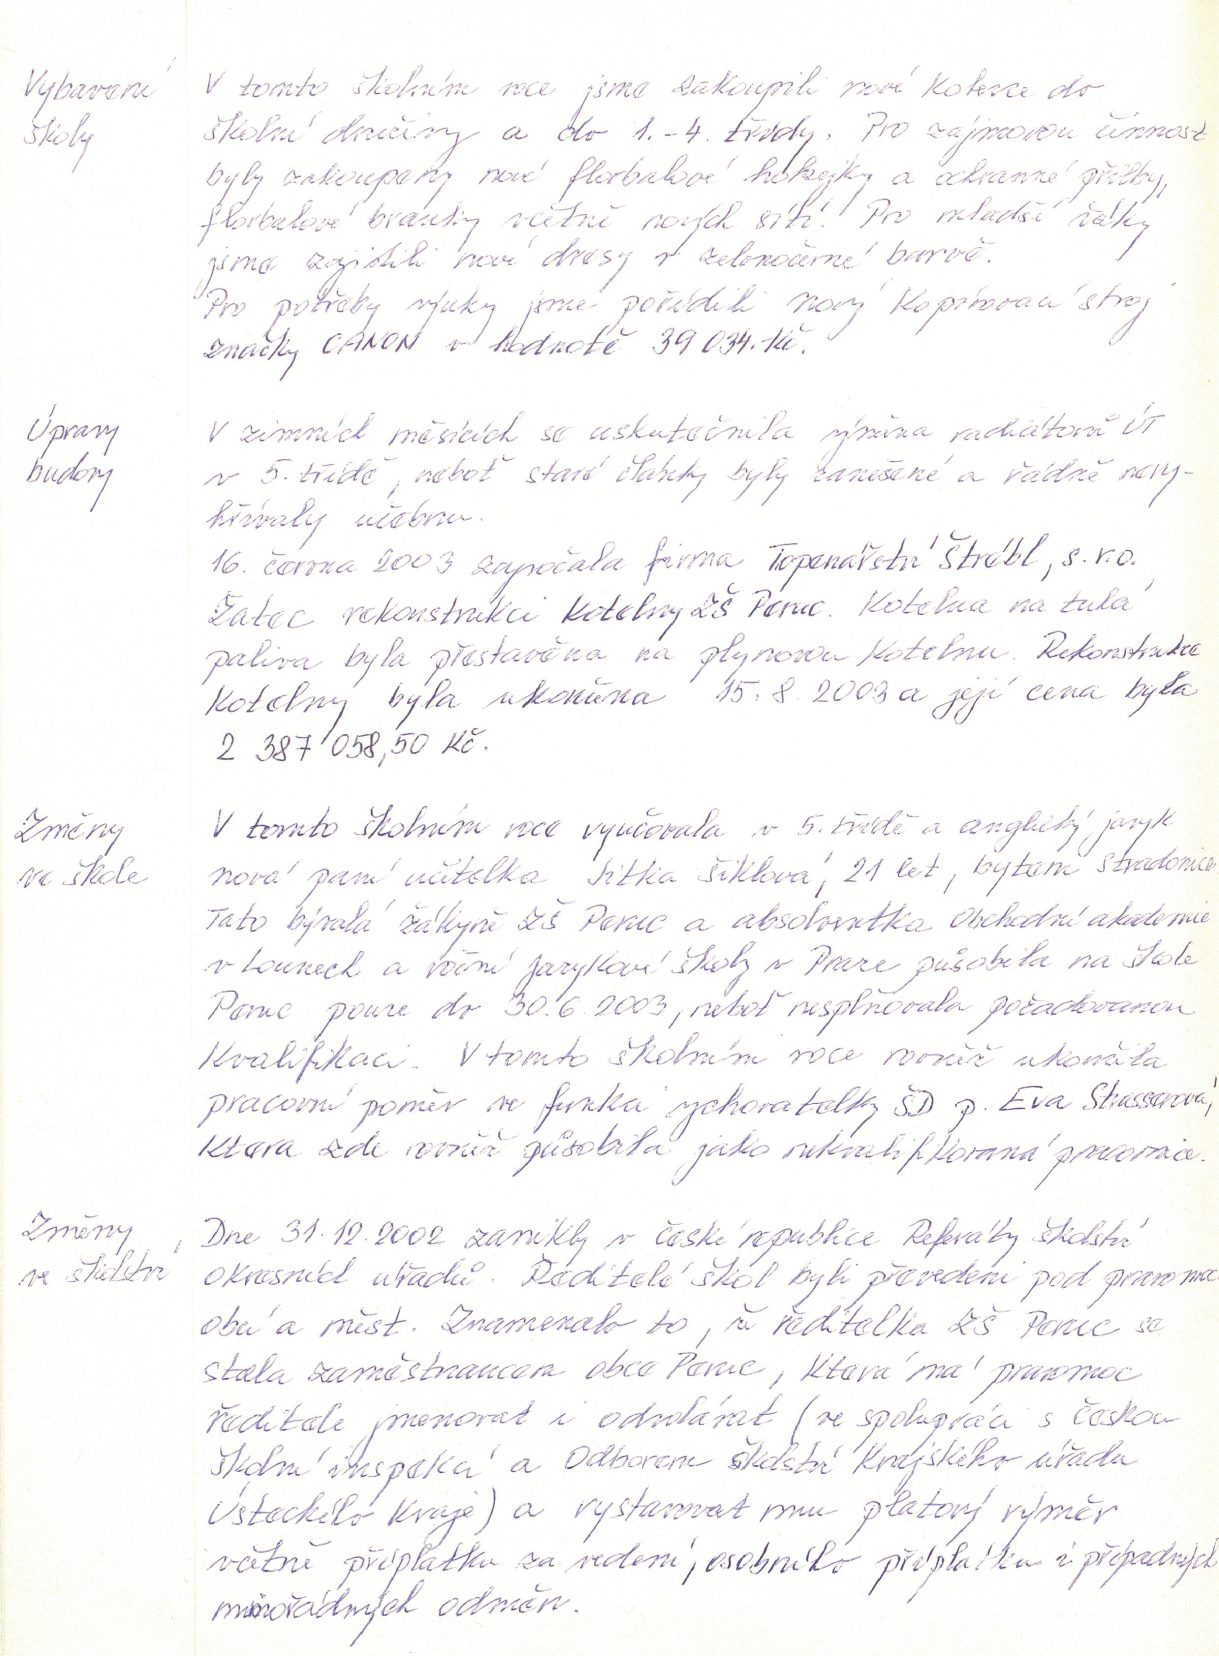 Vybavení
školy
V tomto školním roce jsme zakoupili nové koberce do
školní družiny a do 1.-4. třídy. Pro zájmovou činnost
byly zakoupeny nové florbalové hokejky a ochranné přilby,
florbalové branky včetně nových sítí. Pro mladší žáky
jsme zajistili nové dresy v zelenočerné barvě.
Pro potřeby výuky jsme pořídili nový kopírovací stroj
značky CANON v hodnotě 39 034.Kč.
Úpravy
budovy
V zimních měsících se uskutečnila výměna radiátorů ÚT
v 5. třídě, neboť staré články byly zanešené a řádně nevy-
hřívaly učebnu.
16. června 2003 započala firma Topenářství Štrébl, s.r.o.
Žatec rekonstrukci kotelny ZŠ Peruc. Kotelna na tuhá
paliva byla přestavěna na plynovou kotelnu. Rekonstrukce
kotelny byla ukončena 15. 8. 2003 a její cena byla
2 387 058,50 Kč.
Změny
ve škole
V tomto školním roce vyučovala v 5. třídě a anglický jazyk
nová paní učitelka Jitka Šiklová, 21 let, bytem Stradonice
Tato bývalá žákyně ZŠ Peruc a absolventka Obchodní akademie
v Lounech a roční jazykové školy v Praze působila na škole
Peruc pouze do 30.6.2003, neboť nesplňovala požadovanou
kvalifikaci. V tomto školním roce rovněž ukončila
pracovní poměr ve funkci vychovatelky ŠD p. Eva Strasserová,
která zde rovněž působila jako nekvalifikovaná pracovnice.
Změny
ve školství
Dne 31.12.2002 zanikly v České republice Referáty školství
okresních úřadů. Ředitelé škol byli převedeni pod pravomoc
obcí a měst. Znamenalo to, že ředitelka ZŠ Peruc se
stala zaměstnancem obce Peruc, která má pravomoc
ředitele jmenovat i odvolávat (ve spolupráci s Českou
školní inspekcí a Odborem školství Krajského úřadu
Ústeckého kraje) a vystavovat mu platový výměr
včetně příplatku za vedení, osobního příplatku i případných
mimořádných odměn.